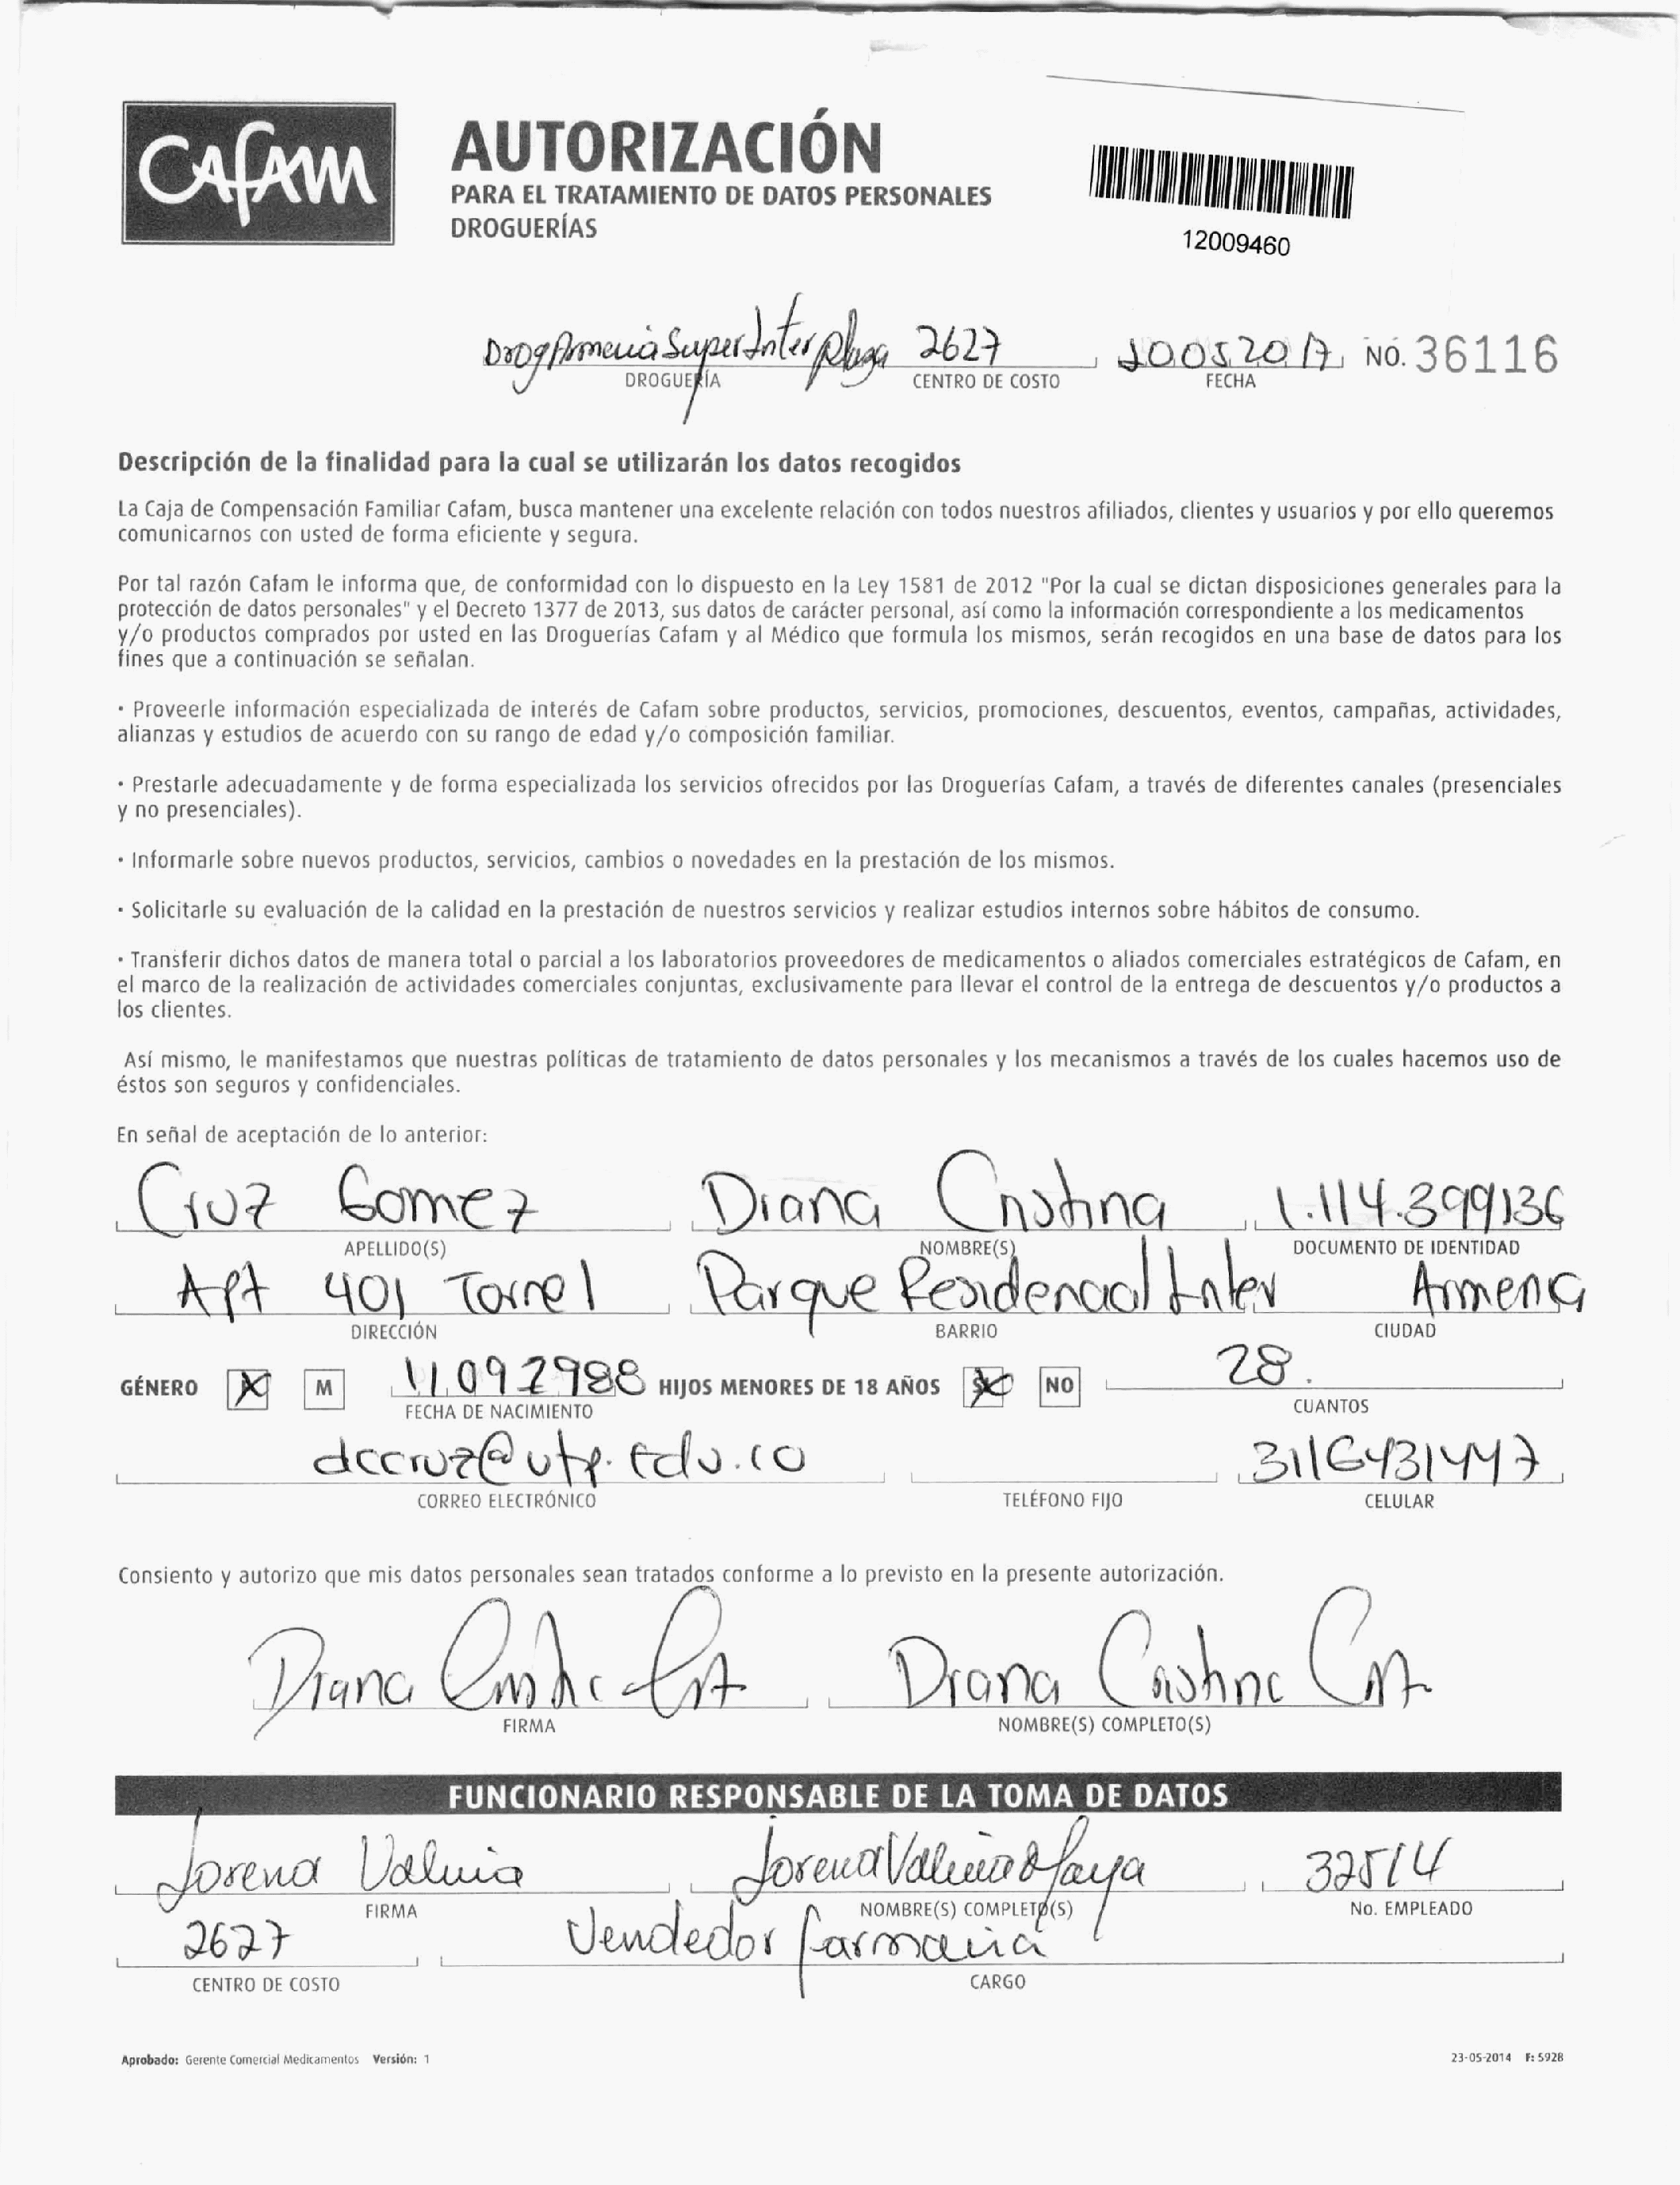 CAFAM
AUTORIZACIÓN
PARA EL TRATAMIENTO DE DATOS PERSONALES
DROGUERÍAS
12009460
Drog Armenia Super Inter plaza 2627 10052017 NO. 36116
DROGUERÍA CENTRO DE COSTO FECHA
Descripción de la finalidad para la cual se utilizarán los datos recogidos
La Caja de Compensación Familiar Cafam, busca mantener una excelente relación con todos nuestros afiliados, clientes y usuarios y por ello queremos
comunicarnos con usted de forma eficiente y segura.
Por tal razón Cafam le informa que, de conformidad con lo dispuesto en la Ley 1581 de 2012 "Por la cual se dictan disposiciones generales para la
protección de datos personales" y el Decreto 1377 de 2013, sus datos de carácter personal, así como la información correspondiente a los medicamentos
y/o productos comprados por usted en las Droguerías Cafam y al Médico que formula los mismos, serán recogidos en una base de datos para los
fines que a continuación se señalan.
· Proveerle información especializada de interés de Cafam sobre productos, servicios, promociones, descuentos, eventos, campañas, actividades,
alianzas y estudios de acuerdo con su rango de edad y/o composición familiar.
· Prestarle adecuadamente y de forma especializada los servicios ofrecidos por las Droguerías Cafam, a través de diferentes canales (presenciales
y no presenciales).
· Informarle sobre nuevos productos, servicios, cambios o novedades en la prestación de los mismos.
· Solicitarle su evaluación de la calidad en la prestación de nuestros servicios y realizar estudios internos sobre hábitos de consumo.
· Transferir dichos datos de manera total o parcial a los laboratorios proveedores de medicamentos o aliados comerciales estratégicos de Cafam, en
el marco de la realización de actividades comerciales conjuntas, exclusivamente para llevar el control de la entrega de descuentos y/o productos a
los clientes.
Así mismo, le manifestamos que nuestras políticas de tratamiento de datos personales y los mecanismos a través de los cuales hacemos uso de
éstos son seguros y confidenciales.
En señal de aceptación de lo anterior:
Cruz Gomez Diana Cristina 1.114.399136
APELLIDO(S) NOMBRE(S) DOCUMENTO DE IDENTIDAD
Apt 401 Torre 1 Parque Residencial Inter Armenia
DIRECCIÓN BARRIO CIUDAD
GÉNERO X M 11091988 HIJOS MENORES DE 18 AÑOS X NO 28.
FECHA DE NACIMIENTO CUANTOS
dccruz@utp.edu.co 3116431447
CORREO ELECTRÓNICO TELÉFONO FIJO CELULAR
Consiento y autorizo que mis datos personales sean tratados conforme a lo previsto en la presente autorización.
Diana Cristina Diana Cristina
FIRMA NOMBRE(S) COMPLETO(S)
FUNCIONARIO RESPONSABLE DE LA TOMA DE DATOS
Lorena Valencia Lorena Valencia Maya 32514
FIRMA NOMBRE(S) COMPLETO(S) No. EMPLEADO
2627 Vendedor farmacia
CENTRO DE COSTO CARGO
Aprobado: Gerente Comercial Medicamentos Versión: 1 23-05-2014 F: 5928